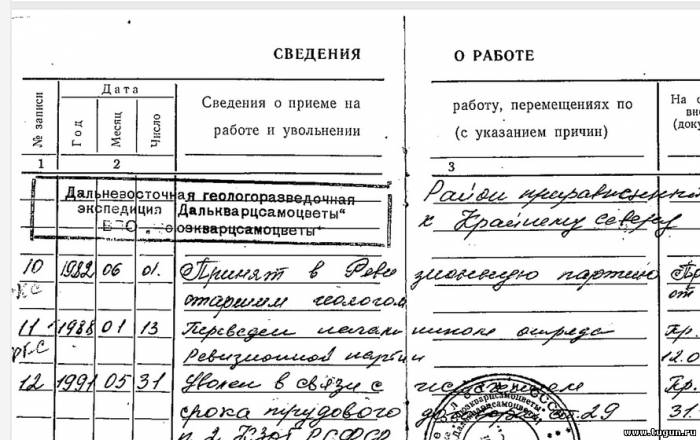 СВЕДЕНИЯ О РАБОТЕ
№ записи
Дата
Год
Месяц
Число
Сведения о приеме на
работе и увольнении
работу, перемещениях по
(с указанием причин)
На о
вне
(доку
1 2 3
Дальневосточная геологоразведочная
экспедиция „Далькварцсамоцветы"
Район приравненный
к Крайнему северу
10 1982 06 01. Принят в Реви зионную партию Пр
старшим геологом от
11 1988 01 13 Переведен начальником отряда Пр.
Ревизионной партии 12.0
12 1991 05 31 Уволен в связи с истечением Пр.
срока трудового ст.29 31.
п.2 КЗоТ РСФСР
Далькварцсамоцветы
www.tugun.ru